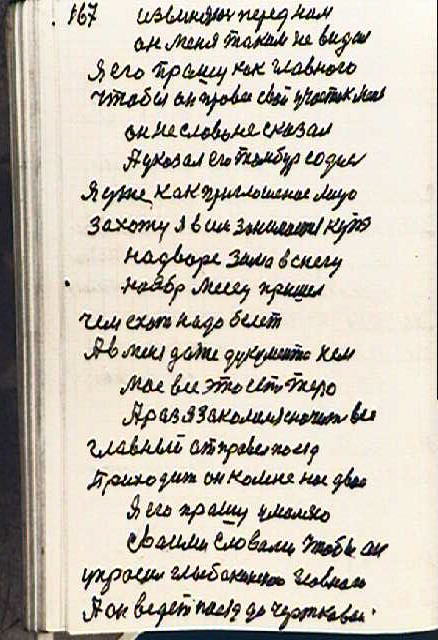 167 извиняюс перед ним
он меня таком не видал
Я его прашу как главного
чтобы он провес свой участок
он не слово не сказал
А указал его тамбур
Я уже как приглошеное лицо
Захожу я в купэ
На дворе Зима в снегу
Ноябр Месец пришел
чем ехат надо белет
А в меня даже дукумента нем
мое все это ест перо
А раз я закалился значит все
главный отправел поезд
Приходит он комне на двое
Я его прашу умоляю
Своими словами чтобы он
упросил главного
А он ведет поезд до черткова